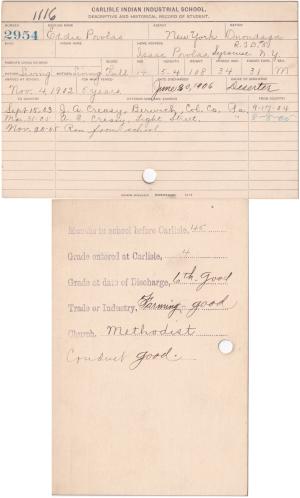 1116
CARLISLE INDIAN INDUSTRIAL SCHOOL.
DESCRIPTIVE AND HISTORICAL RECORD OF STUDENT.
2954 Eddie Powlas New York Onondaga
Isaac Powlas, Syracuse N.Y.
Living Living Full 19 5-4 108 34 31 M
Nov. 4, 1902 5 years June 30, 1906 Deserter
Sept. 15-03 J. A. Creasy, Berwick, Col. Co. Pa. 9-17-04
Mar. 31-05 A. B. Creasy, Light Street, " 8-8-05
Nov. 20-05 Ran from school
Months in school before Carlisle, 45
Grade entered at Carlisle, 4
Grade at date of Discharge, 6th. Good
Trade or Industry, Farming - good
Church, Methodist
Conduct good.